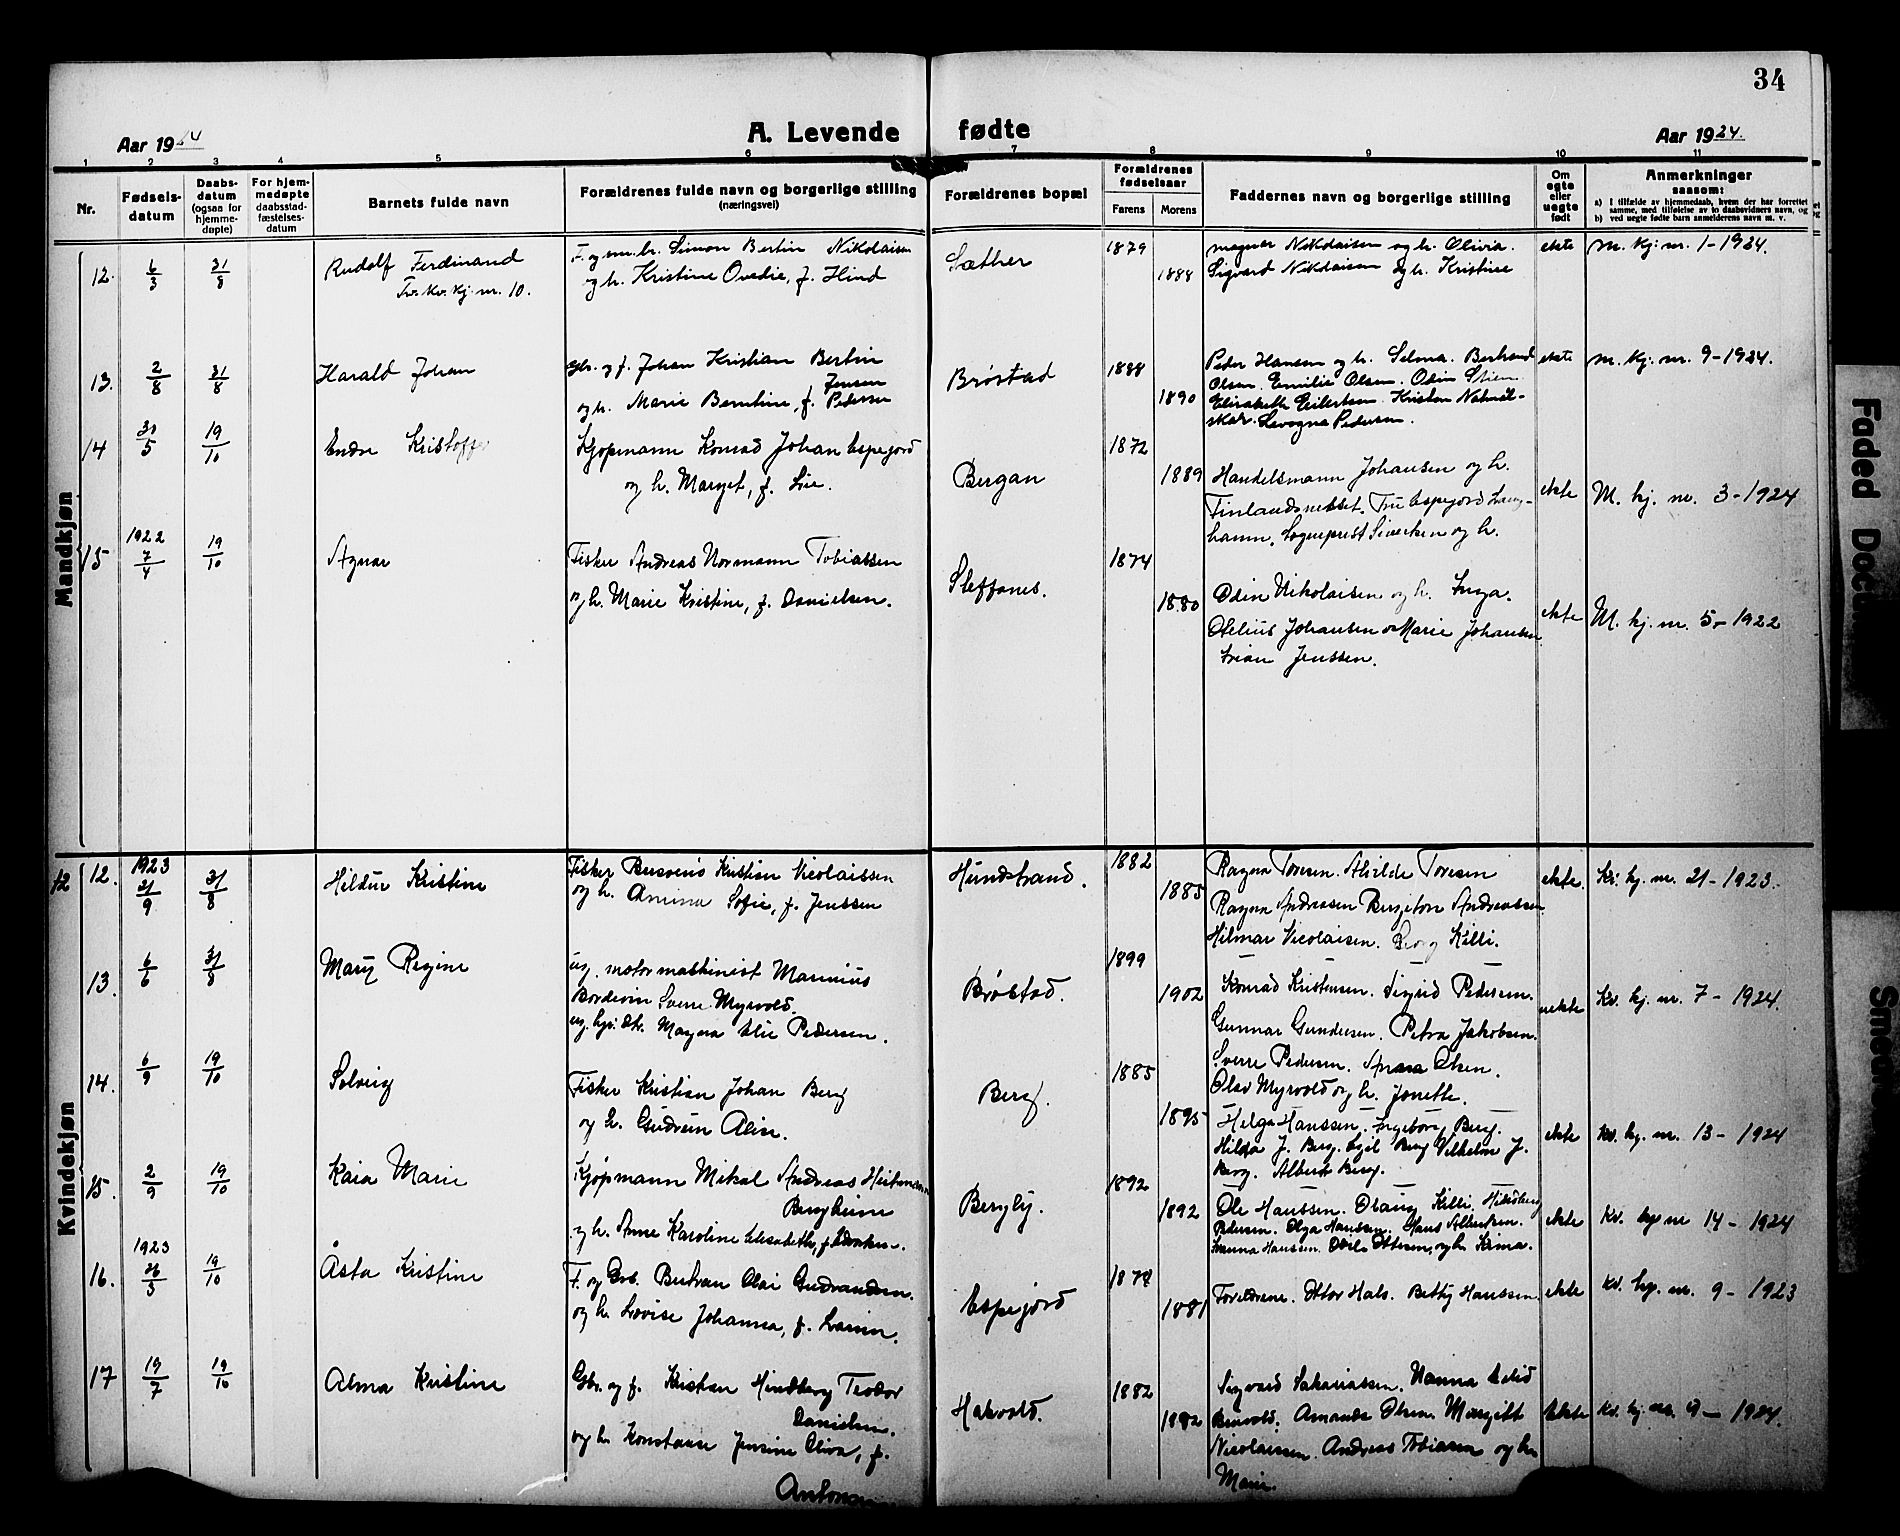 34
Aar 1924
A. Levende fødte
Aar 1924.
1 2 3 4 5 6 7 8 9 10 11
Nr.
Fødsels-
datum
Daabs-
datum
(ogsaa for
hjemme-
døpte)
For hjem-
medøpte
daabsstad-
fæstelses-
datum
Barnets fulde navn
Forældrenes fulde navn og borgerlige stilling
(næringsvei)
Forældrenes bopæl
Forældrenes
fødselsaar
Farens Morens
Faddernes navn og borgerlige stilling
Om
egte
eller
uegte
født
Anmerkninger
saasom:
a) I tilfælde av hjemmedaab, hvem der har forrettet
samme, med tilføielse av to daabsvidners navn, og
b) ved uegte fødte barn anmelderens navn m. v.
Mandkjøn
12. 6/3 31/8 Rudolf Ferdinand
Tv. Kv. kj. nr. 10.
F. og sm. br. Simon Bertin Nikolaisen
og h. Kristine Ovedie, f. Hind
Sæther
1879
1888
Magnus Nikolaisen og h. Olivia.
Sigvard Nikolaisen og h. Kristine
ekte
M. kj. nr. 1-1924.
13. 2/8 31/8 Harald Johan
gbr. og f. Johan Kristian Bertin
Jensen
og h. Marie Berntine, f. Pedersen
Brøstad
1888
1890
Peder Hansen og h. Selma. Bertrand
Olsen. Emilie Olsen. Odin Stien.
Elisabeth Eilertsen. Kristen
skar. Pedersen.
ekte
M. kj. nr. 9-1924.
14 31/5 19/10 Endre Kristoffer
Kjøpmann Konrad Johan Espejord
og h. Margit, f. Lie.
Bergan
1872
1889
Handelsmann Johansen og h.
Finlandsnesset. Fru Espejord Lang-
hamn. Sogneprest Sivertsen og h.
ekte
M. kj. nr. 3-1924
15 1922 7/4 19/10 Agnar
Fisker Andreas Normann Tobiassen
og h. Marie Kristine, f. Danielsen.
Steffanes.
1874
1880
Odin Nikolaisen og h. Inga.
Otelius Johansen Marie Johansen
Jenssen.
ekte
M. kj. nr. 5-1922
Kvindekjøn
12
12. 1923 21/9 31/8 Hildur Kristine
Fisker Kristian Nicolaissen
og h. Amina Sofie, f. Jenssen
Hundstrand.
1882
1885
Ragna Toresen. Alvilde Toresen
Ragna Andreasen Andreassen
Hilmar Nicolaisen. Georg Killi.
ekte.
Kv. kj. nr. 21-1923.
13. 6/6 31/8 Mary Regine
ug. motormaskinist Marinius
Bordevin Sverre Myrvold.
ug. hjv. dtr. Magna Elie Pedersen.
Brøstad.
1899
1902
Konrad Kristensen. Sigrid Pedersen.
Gunnar Gundersen. Petra Jakobsen.
Sverre Pedersen. Anna Olsen.
Olav Myrvold og h. Jonette.
uekte
Kv. kj. nr. 7-1924.
14. 6/9 19/10 Solveig
Fisker Kristian Johan Berg
og h. Gudrun Aline.
Berg.
1885
1895
Helga Hanssen. Ingeborg Berg.
Hilda J. Berg. Egil Berg Vilhelm J.
Berg. Albert Berg.
ekte
Kv. kj. nr. 13-1924
15. 2/9 19/10 Kaia Marie
Kjøpmann Mikal Andreas Heitmann
Bergheim
og h. Anne Karoline Elisabeth,
Bergly.
1892
1892
Ole Hanssen. Olaug Killi. Hildborg
Pedersen. Olga Hanssen. Hans Albertsen.
Hanna Hanssen. Ottesen, og h.
ekte
Kv. kj. nr 14-1924
16. 1923 26/3 19/10 Åsta Kristine
F. og Grb. Bertran Olai Gudmundsen.
og h. Lovise Johanna, f. Larsen.
Espejord
1878
1881
Foreldrene. Ottar Hals. Betty Hanssen.
ekte
Kv. kj. nr. 9-1923
17 19/7 19/10 Alma Kristine
Gbr. og f. Kristian Hindberg Teodor
Danielsen.
og h. Konstanse Jensine Oliva, f.
Antonsen
Hakvold.
1882
1882
Sigvard Sakariassen. Nanna Elid
Amanda Olsen. Margitt
Nicolaissen. Andreas Tobiassen og h.
Marie.
Ekte
Kv. kj. nr. 9-1924.
Faded Doc
Sme